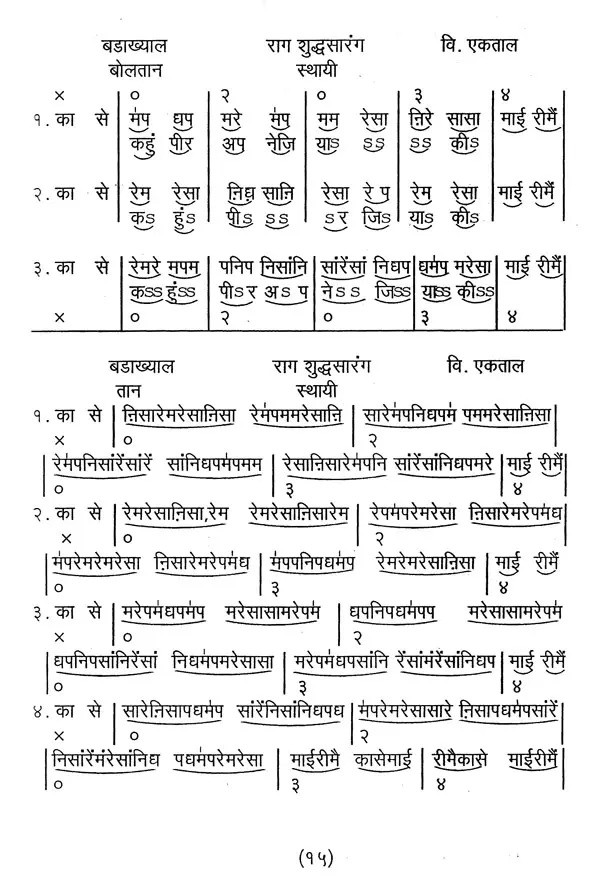 बडाख्याल राग शुद्धसारंग वि. एकताल
बोलतान स्थायी
× ० २ ० ३ ४
१. का से म॑प धप | मरे म॑प | मम रेसा | ऩिरे सासा | माई रीमैं
कहुं पीर | अप नेजि | याऽ ऽऽ | ऽऽ कीऽ
२. का से रेम रेसा | ऩिध़ साऩि | रेसा रे प | रेम रेसा | माई रीमैं
कऽ हुंऽ | पीऽ ऽऽ | ऽर जिऽ | याऽ कीऽ
३. का से रेमरे मपम | पनिप निसांनि | सांरेंसां निधप | धम॑प मरेसा | माई रीमैं
कऽऽ हुंऽऽ | पीऽर अऽप | नेऽऽ जिऽऽ | याऽऽ कीऽऽ
× ० २ ० ३ ४
बडाख्याल राग शुद्धसारंग वि. एकताल
तान स्थायी
१. का से | ऩिसारेमरेसाऩिसा रेम॑पममरेसाऩि | सारेम॑पनिधपम॑ पममरेसाऩिसा
× ० २
रेम॑पनिसांरेंसांरें सांनिधपम॑पमम | रेसाऩिसारेम॑पनि सांरेंसांनिधपमरे | माई रीमैं
० ३ ४
२. का से | रेमरेसाऩिसा,रेम रेमरेसाऩिसारेम | रेपम॑परेमरेसा ऩिसारेमरेपम॑ध
× ० २
म॑परेमरेमरेसा ऩिसारेमरेपम॑ध | म॑पपनिपधम॑प रेमरेमरेसाऩिसा | माई रीमैं
० ३ ४
३. का से | मरेपम॑धपम॑प मरेसासामरेपम॑ | धपनिपधम॑पप मरेसासामरेपम॑
× ० २
धपनिपसांनिरेंसां निधम॑पमरेसासा | मरेपम॑धपसांनि रेंसांमंरेंसांनिधप | माई रीमैं
० ३ ४
४. का से | सारेऩिसापधम॑प सांरेंनिसांनिधपध | म॑परेमरेसासारे ऩिसापधम॑पसांरें
× ० २
निसांरेंमंरेसांनिध पधम॑परेमरेसा | माईरीमै कासेमाई | रीमैकासे माईरीमैं
० ३ ४
(१५)